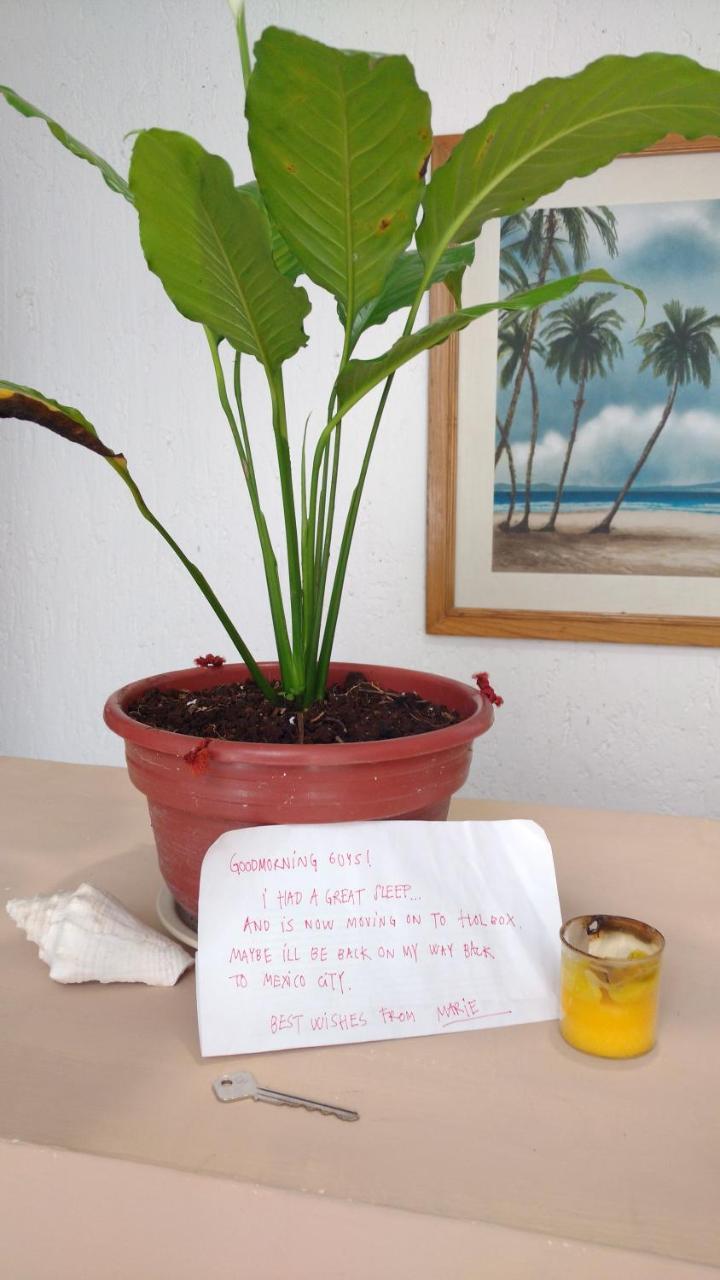 GOODMORNING GUYS!
i HAD A GREAT SLEEP...
AND iS NOW MOVING ON TO HOLBOX.
MAYBE iLL BE BACK ON MY WAY BACK
TO MEXICO CiTY.
BEST WISHES FROM MARiE